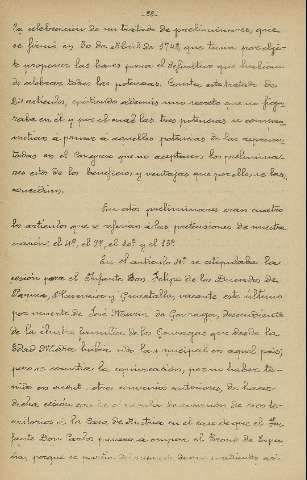 -88-
la celebracion de un tratado de preliminares, que
se firmó en 30 de Abril de 1748, que tenia por obje-
to proponer las bases para el definitivo que habian
de celebrar todas las potencias. Consta este tratado de
24 articulos, existiendo además uno secreto que no figu-
raba en él y por el cual las tres potencias se compro-
metian á privar á aquellas potencias de las represen-
tadas en el Congreso que no aceptasen los prelimina-
res estos de los beneficios y ventajas que por ellos se les
concedian.
En estos preliminares eran cuatro
los articulos que se referian á las pretensiones de nuestra
nacion: el 4º, el 9º, el 10º y el 15º
En el articulo 4º se estipulaba la
cesion para el Infante Don Felipe de los Ducados de
Parma, Plasencia y Guastalla, vacante este último
por muerte de José Maria de Gonzaga, descendiente
de la ilustre familia de los Gonzagas que desde la
Edad Media habia sido la principal en aquel pais,
pero se cometia la equivocacion, por no haber te-
nido en cuenta otros convenios anteriores, de hacer
dicha cesion con la clausula de reversion de esos te-
rritorios á la Casa de Austria en el caso de que el In-
fante Don Carlos pasase á ocupar el Trono de Espa-
ña, porque se